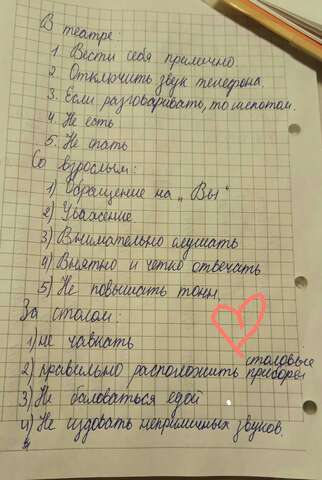 В театре
1. Вести себя прилично
2. Отключить звук телефона.
3. Если разговаривать, то шепотом.
4. Не есть
5. Не спать
Со взрослым:
1) Обращение на „Вы"
2) Уважение
3) Внимательно слушать
4) Внятно и четко отвечать
5) Не повышать тонн.
За столом:
1) не чавкать
2) правильно расположить столовые приборы
3) Не баловаться едой
4) Не издовать неприличных звуков.